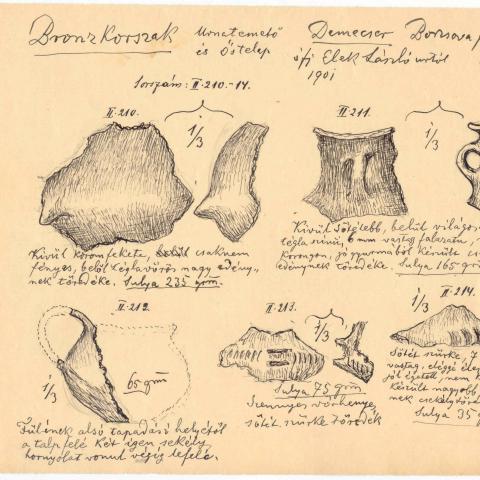 Bronzkorszak Urnatemető és Őstelep
Demecser Borzsova p
ifj Elek László úrtól
1901
Sorszám: II.210.-14.
II.210.
1/3
Kivül koromfekete, belül csaknem
fényes, belől téglavörös nagy edény„
nek töredéke. Sulya 235 grm.
II.211.
1/3
Kivül sötétebb, belül világos
tégla szinü, 6 mm vastag falazatu,
korongon, jó gyurmából készült cs
edénynek töredéke. Sulya 165 gr
II.212.
1/3
65 grm
Fülének alsó tapadási helyétől
a talp felé két igen sekély
hornyolat vonul végig lefelé.
II.213.
1/3
Sulya 75 grm
Szennyes vörhenyes,
sötét szürke töredék
II.214.
1/3
Sötét szürke, 7
vastag, eléggé
jól égetett, nem
készült nagyobb
nek csekély töred
Sulya 35 g